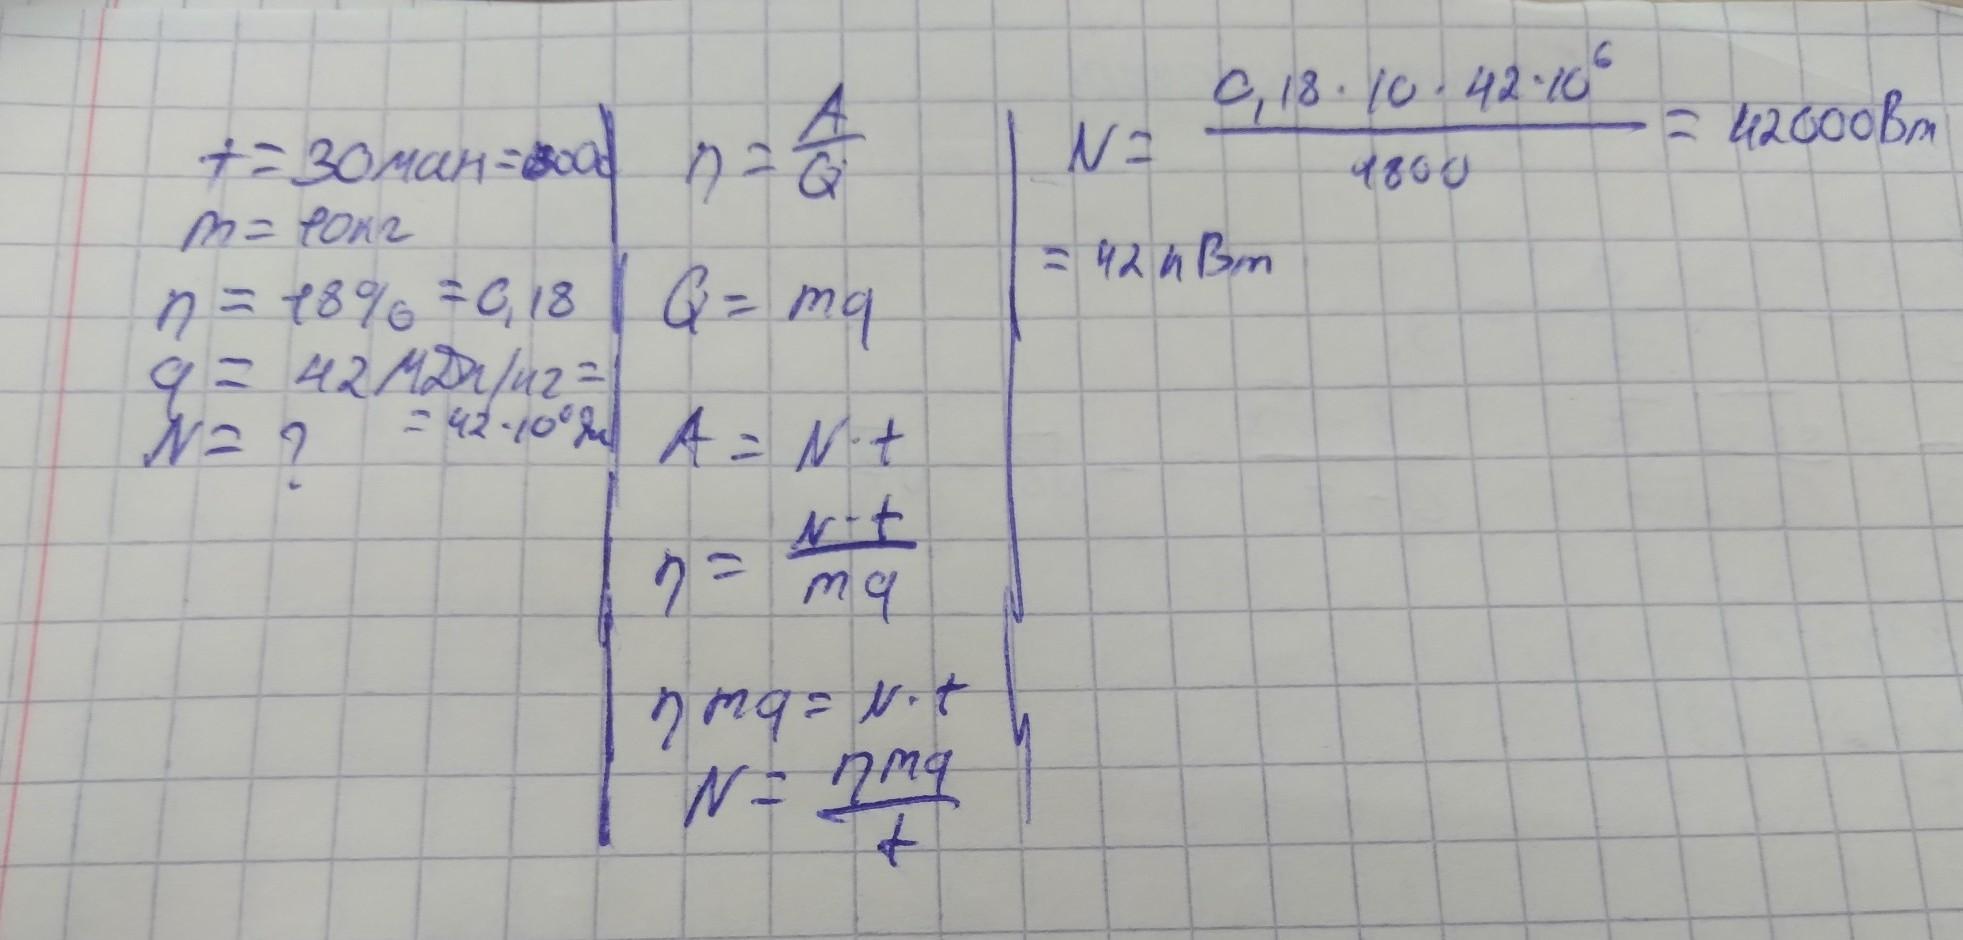 t = 30 мин =
m = 10 кг
η = 18% = 0,18
q = 42 МДж/кг =
= 42·10⁶ Дж
N = ?
η = A/Q
Q = mq
A = N·t
η = N·t/mq
ηmq = N·t
N = ηmq/t
N = 0,18·10·42·10⁶/1800 = 42000Вт
= 42 кВт